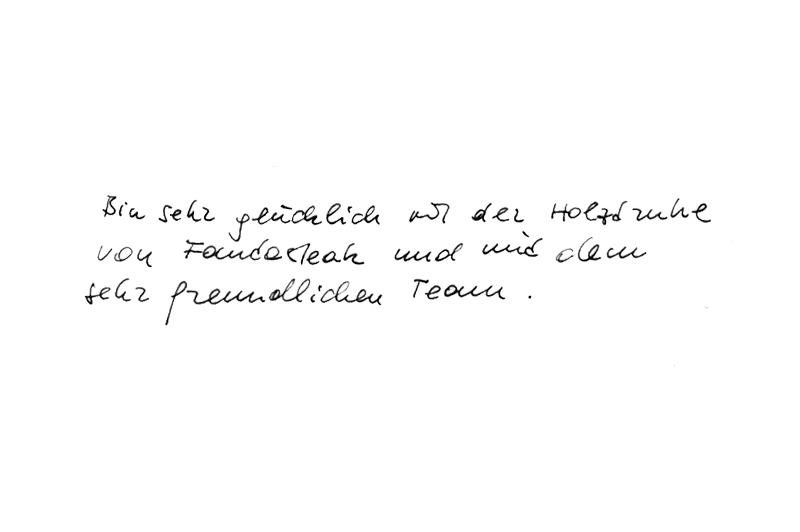 Bin sehr glücklich mit der Holztruhe
von Fantasteak und mit dem
sehr freundlichen Team.